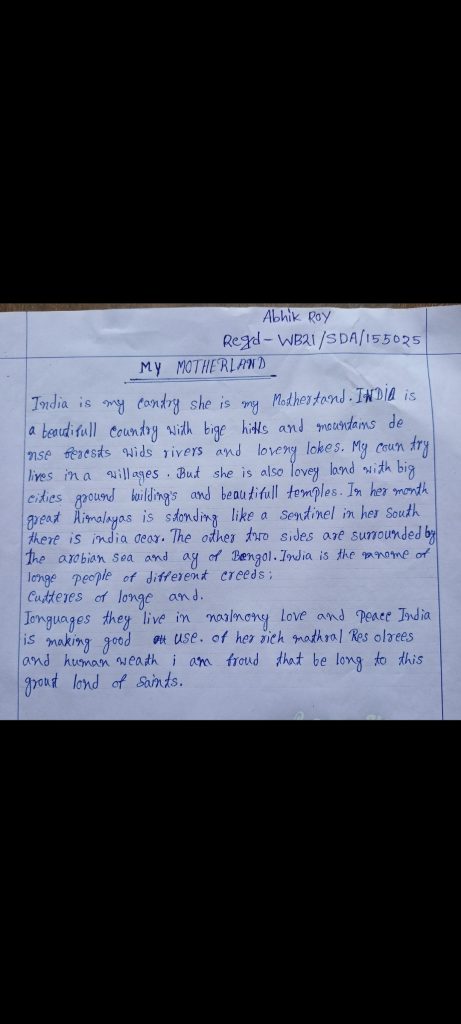 Abhik Roy
Regd - WB21/SDA/155025
MY MOTHERLAND
India is my cantry she is my Mothertand. INDIA is
a beautifull country with bige hills and mountains de
nse ferests wids rivers and loveny lokes. My coun try
lives in a villages. But she is also lovey land with big
cities ground wilding's and beautifull temples. In her month
great Himalayas is stonding like a sentinel in her South
there is india ocar. The other two sides are surrounded by
the arobian sea and ay of Bengol. India is the manome of
longe people of different creeds;
Cutteres of longe and.
Tonguages they live in narlnony Love and peace India
is making good use. of her rich nathral Res olrees
and human weath i am froud that be long to this
grout lond of Saints.